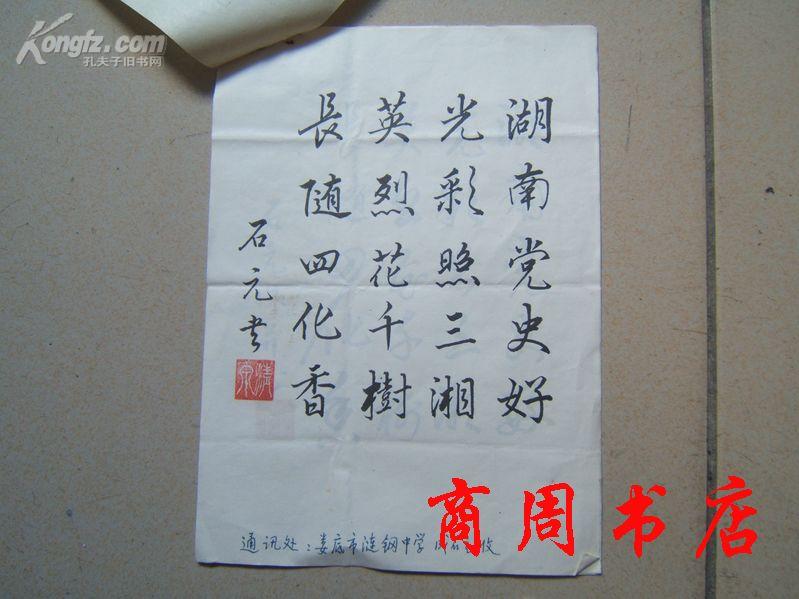 Kongfz.com
孔夫子旧书网
湖南党史好
光彩照三湘
英烈花千樹
長随四化香
石元书
商周书店
通讯处：娄底市涟钢中学